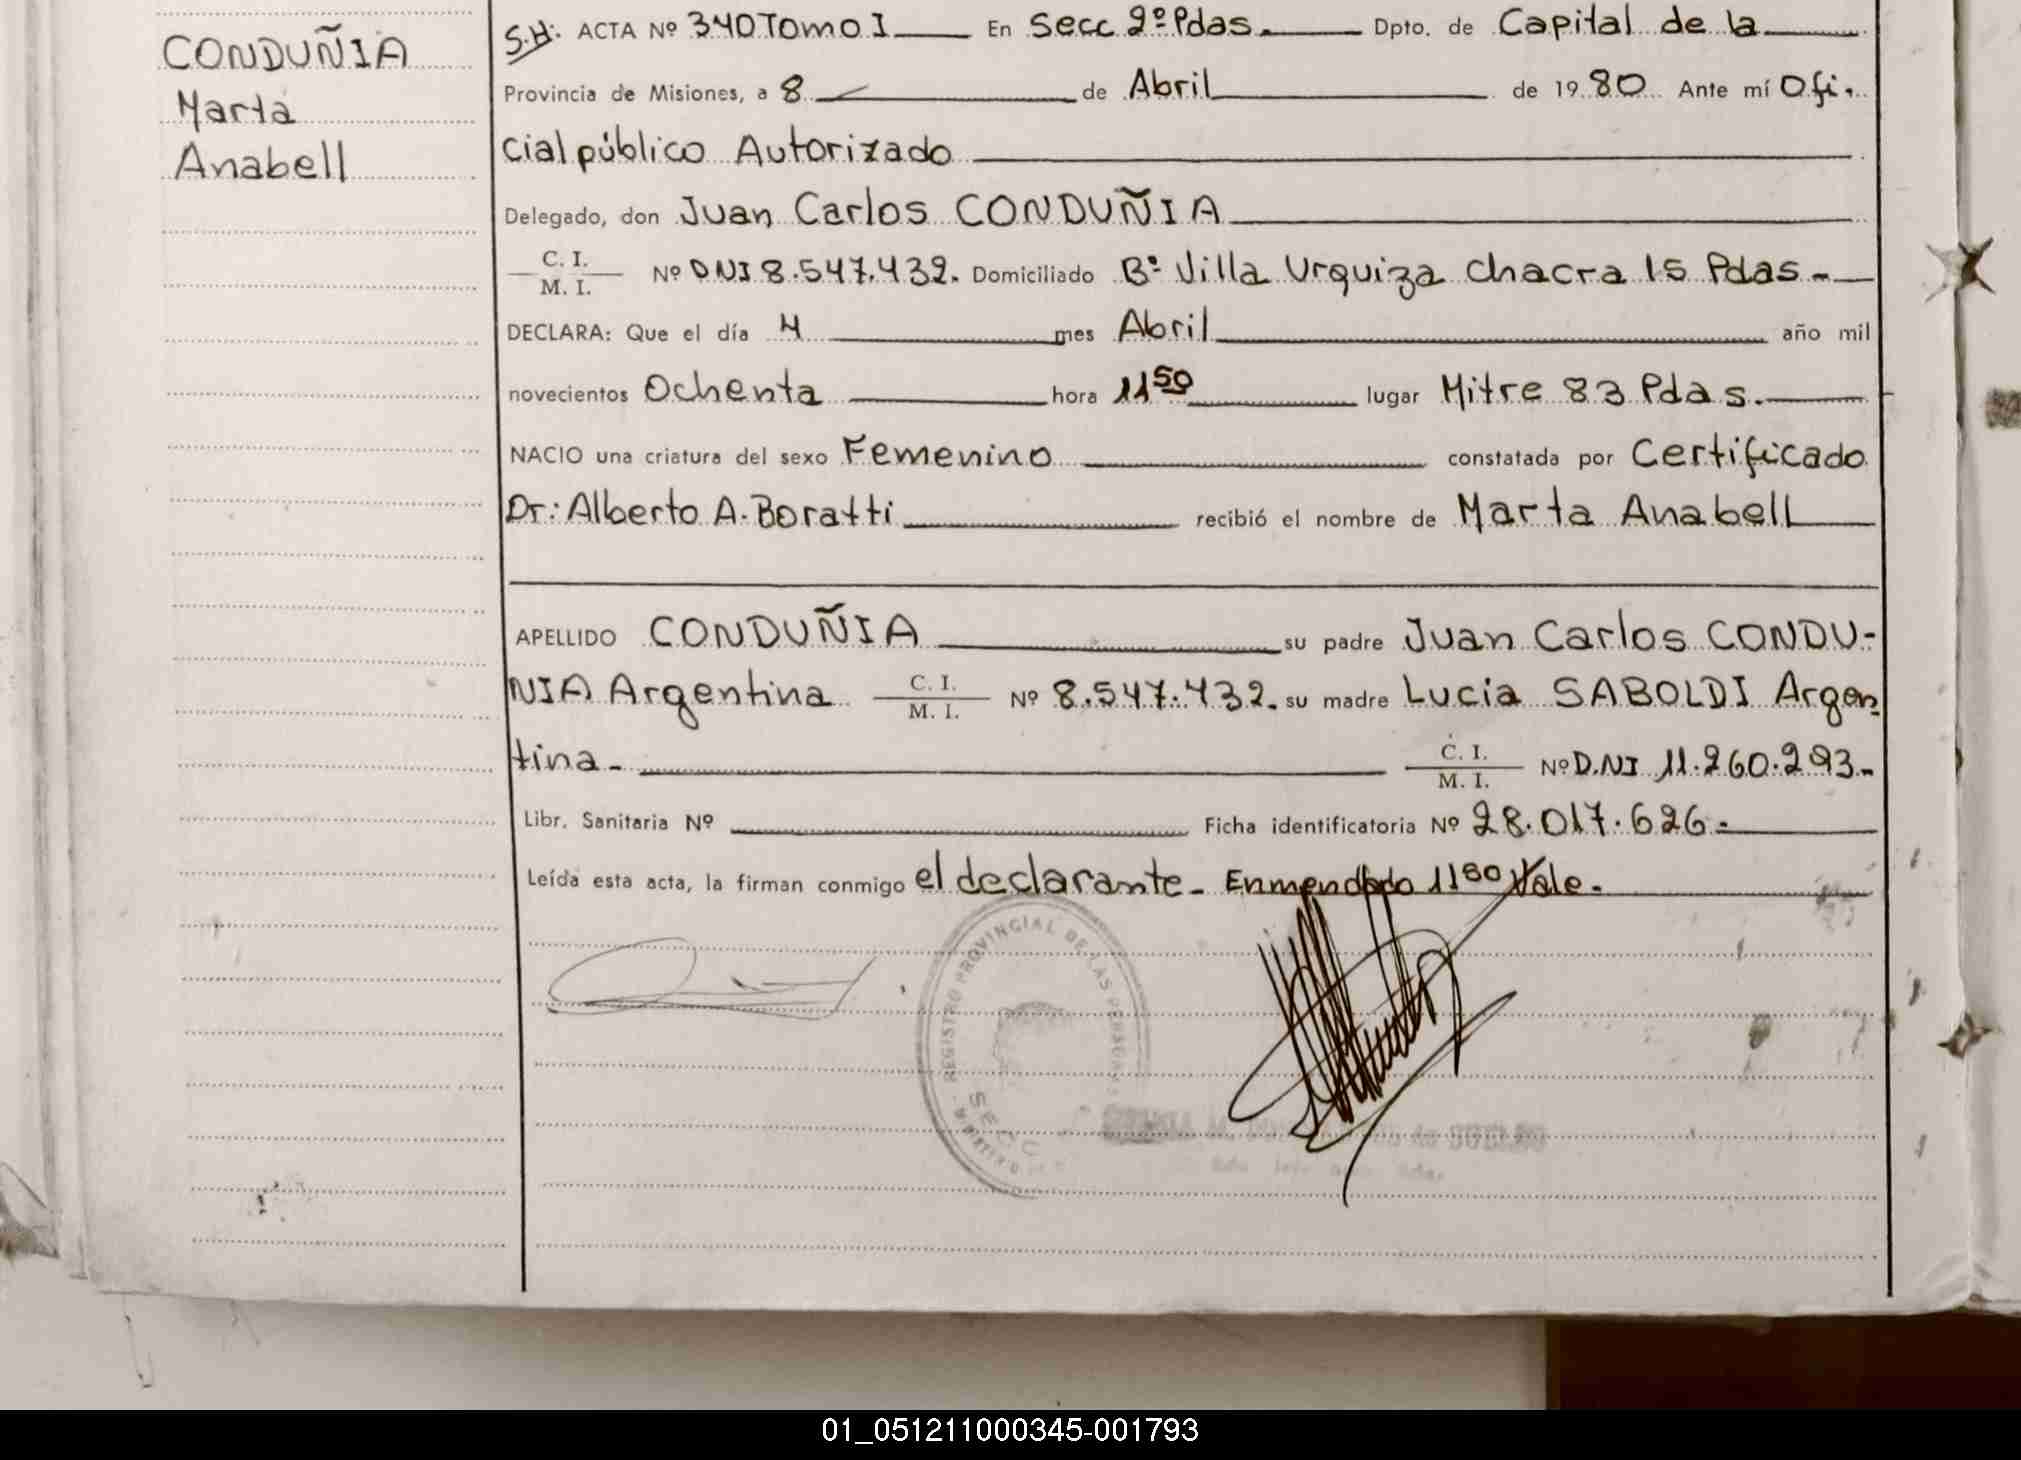 CONDUÑIA
Marta
Anabell
S.H: ACTA Nº 340 Tomo I En Secc 2º Pdas. Dpto. de Capital de la
Provincia de Misiones, a 8 de Abril de 1980 Ante mí Ofi.
cial público Autorizado
Delegado, don Juan Carlos CONDUÑIA
C. I.
M. I. Nº DNI 8.547.432. Domiciliado Bº Villa Urquiza Chacra 15 Pdas-
DECLARA: Que el día 4 mes Abril año mil
novecientos Ochenta hora 11 50 lugar Mitre 83 Pdas.
NACIO una criatura del sexo Femenino constatada por Certificado
Dr: Alberto A. Boratti recibió el nombre de Marta Anabell
APELLIDO CONDUÑIA su padre Juan Carlos CONDU-
NIA Argentina C. I.
M. I. Nº 8.547.432. su madre Lucia SABOLDI Argen
tina- C. I.
M. I. Nº D.NI 11.260.293-
Libr. Sanitaria Nº Ficha identificatoria Nº 28.017.626.-
Leída esta acta, la firman conmigo el declarante- Enmendado 11 50 Vale.
REGISTRO PROVINCIAL DE LAS PERSONAS
SECC
01_051211000345-001793